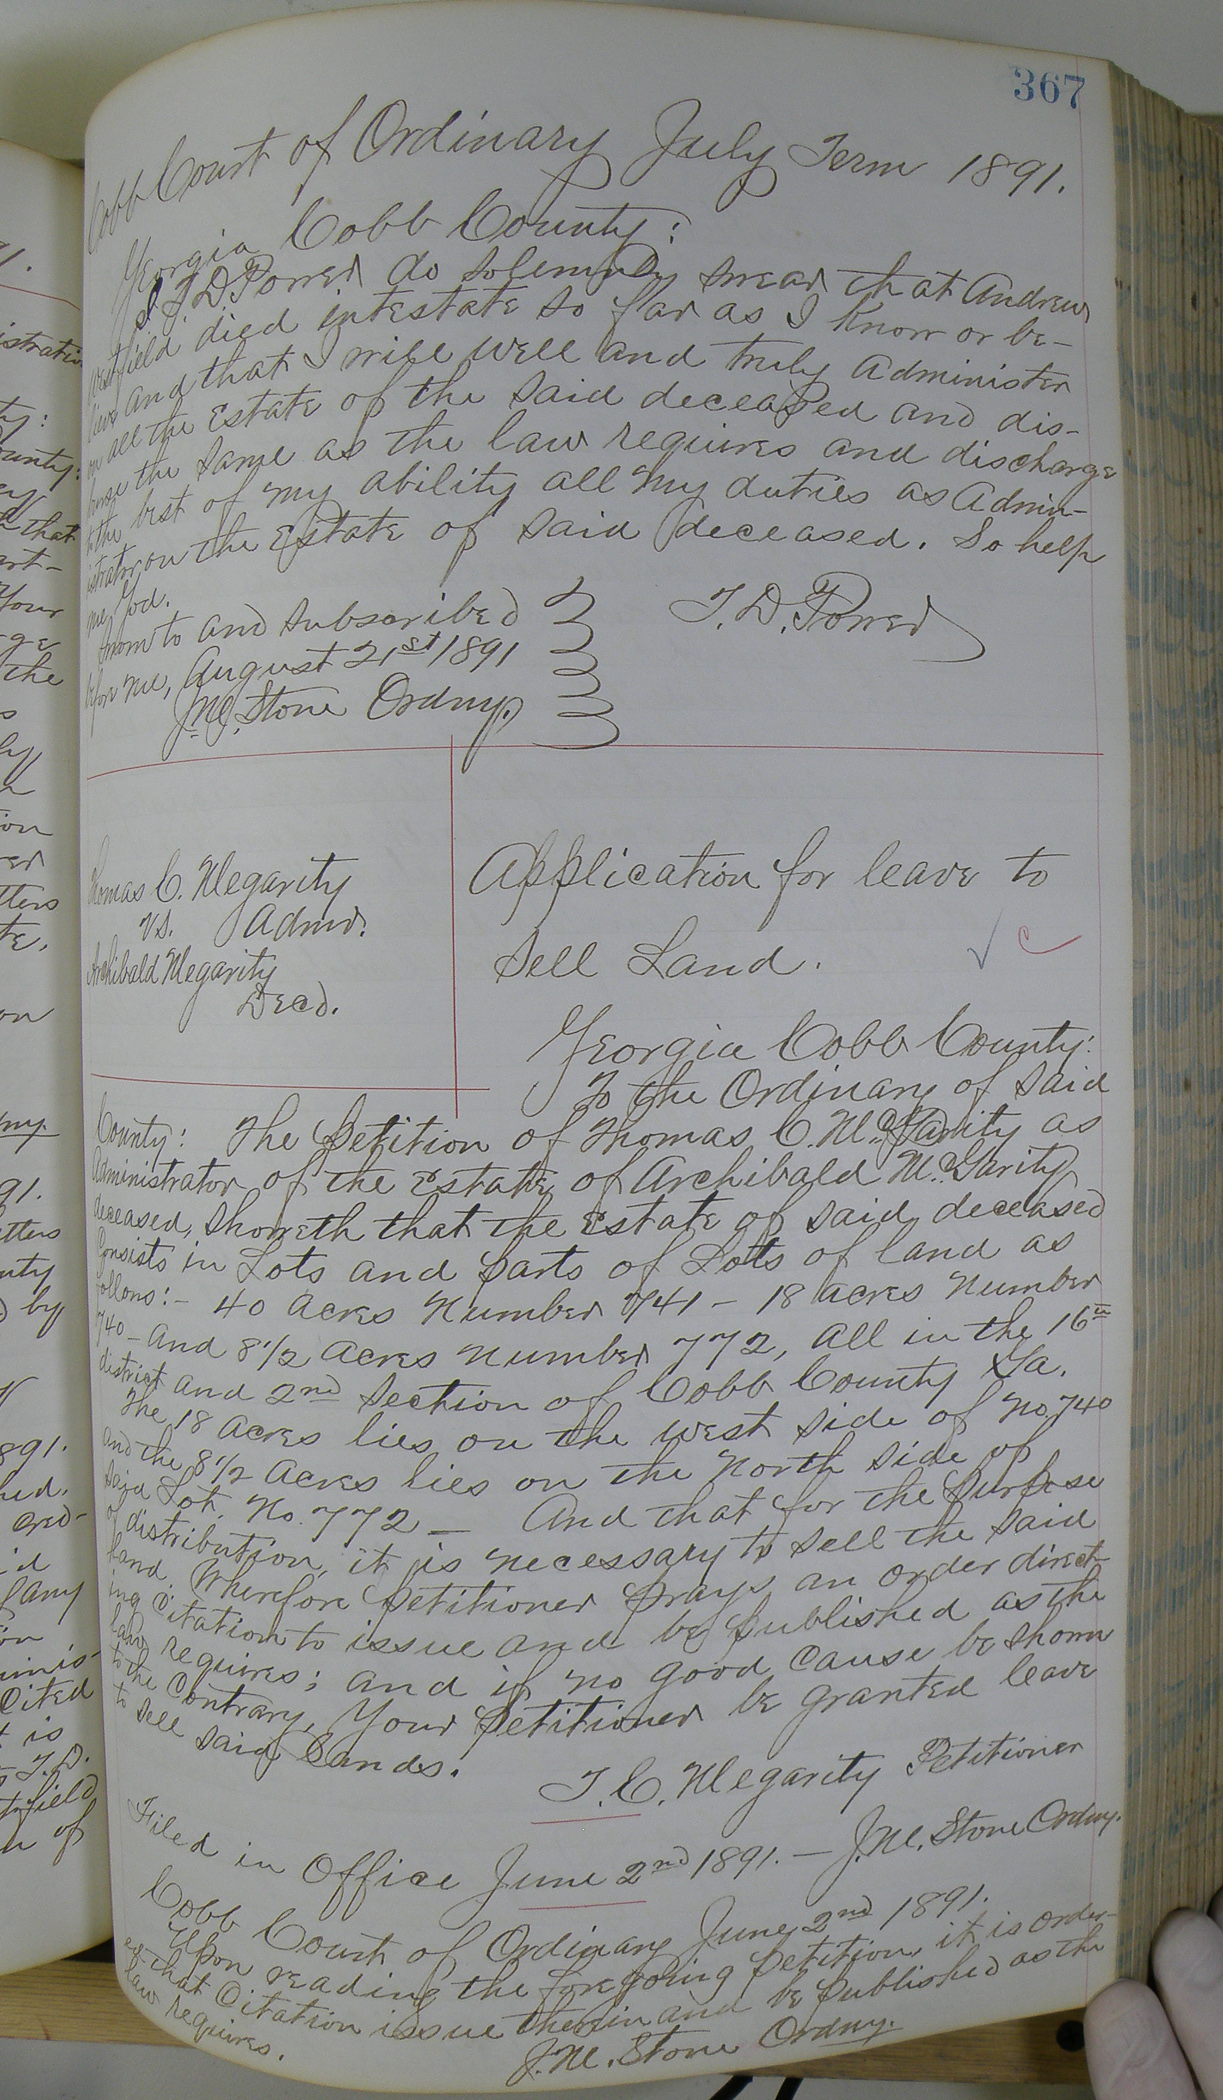 367
Cobb Court of Ordinary July Term 1891.
Georgia Cobb County:
I T. D. Power do solemnly swear that Andrew
field died intestate so far as I know or be-
lieve and that I will well and truly administer
on all the Estate of the said deceased and dis-
burse the same as the law requires and discharge
to the best of my ability all my duties as Admin-
istrator on the Estate of said deceased. So help
me God.
Sworn to and subscribed
before me, August 21st 1891
J. M. Stone Ordny.
T. D. Power
Thomas C. Megarity
vs. Admr.
Archibald Megarity
Decd.
Application for leave to
Sell Land.
Georgia Cobb County:
To the Ordinary of said
County: The Petition of Thomas C. McGarity as
Administrator of the Estate of Archibald McGarity
deceased, showeth that the Estate of said deceased
Consists in Lots and parts of Lots of land as
follows:- 40 acres Number 741 - 18 acres Number
740 - and 8 1/2 acres number 772, all in the 16th
district and 2nd section of Cobb County Ga.
The 18 acres lies on the west side of No. 740
and the 8 1/2 acres lies on the North side of
said Lot No. 772 - And that for the purpose
of distribution, it is necessary to sell the said
land. Wherefore petitioner prays an order direct-
ing citation to issue and be published as the
law requires; and if no good cause be shown
to the Contrary, Your petitioner be granted leave
to sell said Lands.
T. C. Megarity Petitioner
Filed in Office June 2nd 1891. - J. M. Stone Ordny.
Cobb Court of Ordinary June 2nd 1891.
Upon reading the foregoing petition, it is order-
ed that Citation issue therein and be published as the
law requires.
J. M. Stone Ordny.